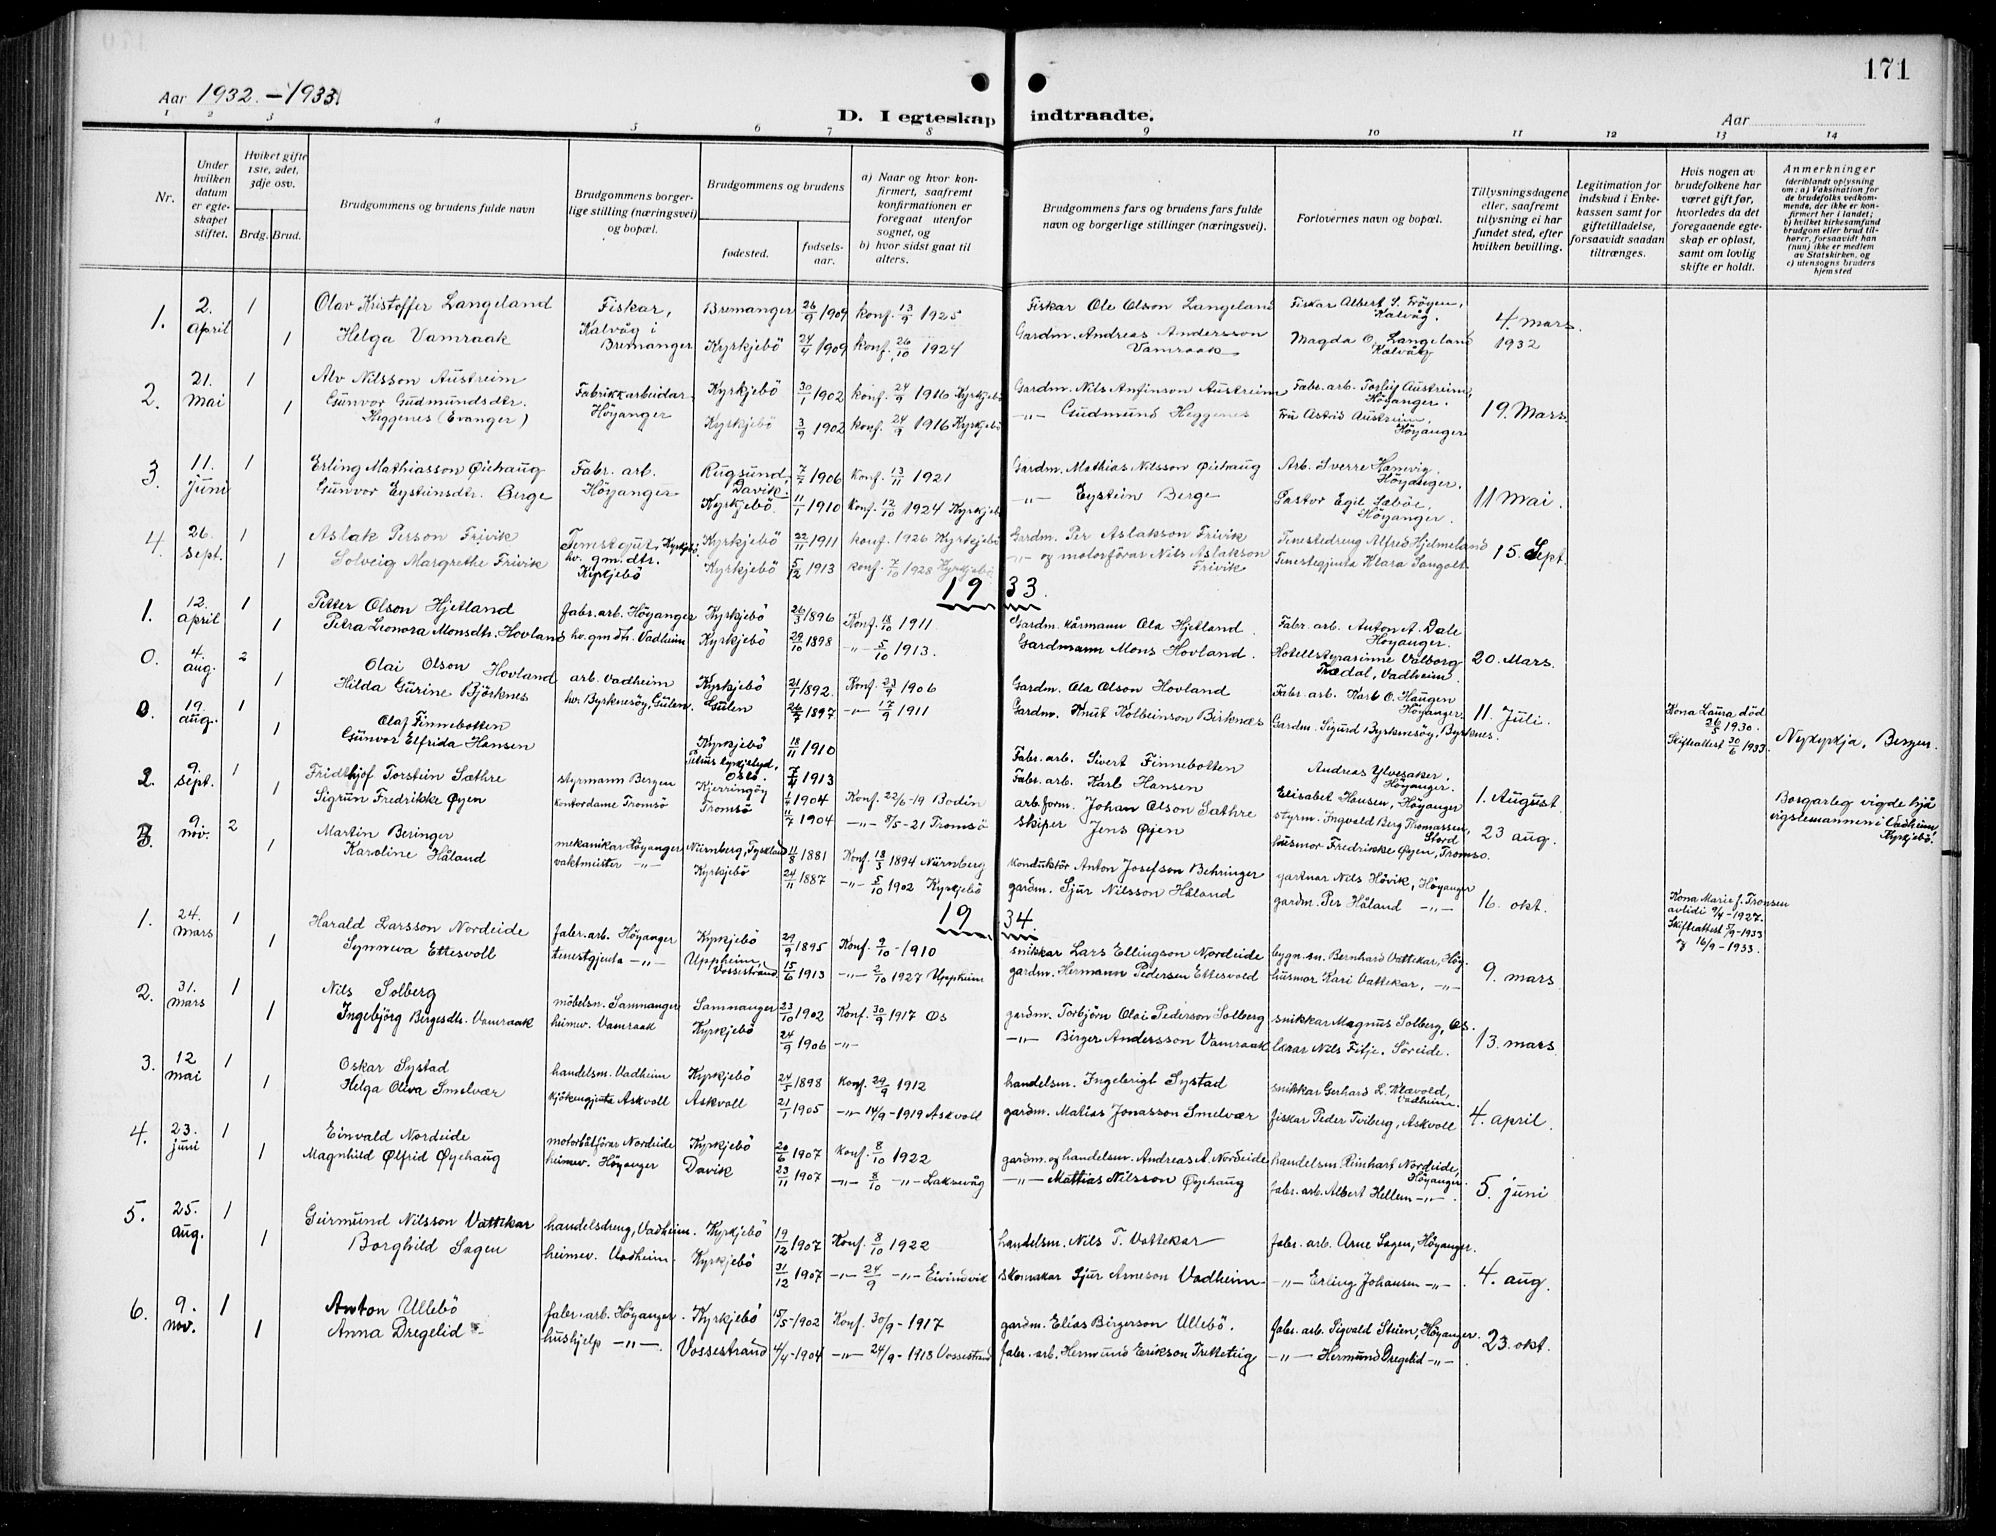 171
Aar 1932. - 1933
D. I egteskap indtraadte.
Aar
1 2 3 4 5 6 7 8 9 10 11 12 13 14
Nr.
Under hvilken datum er egteskapet stiftet.
Hviket gifte 1ste, 2det, 3dje osv.
Brdg. Brud.
Brudgommens og brudens fulde navn
Brudgommens borgerlige stilling (næringsvei) og bopæl.
Brudgommens og brudens
fødested.
fødselsaar.
a) Naar og hvor konfirmert, saafremt konfirmationen er foregaat utenfor sognet, og
b) hvor sidst gaat til alters.
Brudgommens fars og brudens fars fulde navn og borgerlige stillinger (næringsvei).
Forlovernes navn og bopæl.
Tillysningsdagene eller, saafremt tillysning ei har fundet sted, efter hvilken bevilling.
Legitimation for indskud i Enkekassen samt for giftetilladelse, forsaavidt saadan tiltrænges.
Hvis nogen av brudefolkene har været gift før, hvorledes da det foregaaende egteskap er opløst, samt om lovlig skifte er holdt.
Anmerkninger
(deriblandt oplysning om: a) Vaksination for de brudefolks vedkommende, der ikke er konfirmert her i landet; b) hvilket kirkesamfund brudgom eller brud tilhører, forsaavidt han (hun) ikke er medlem av Statskirken, og c) utensogns bruders hjemsted
1. 2. april 1 Olav Kristoffer Langeland Fiskar, Kalvåg i Bremanger Bremanger 26/9 1904 konf. 13/9 1925 Fiskar Ole Olson Langeland Fiskar Albert S. Frøyen, Kalvåg. 4. mars 1932
1 Helga Vamraak Kyrkjebö 24/4 1909 konf. 26/10 1924 Gardm. Andreas Andersson Vamraak Magda O. Langeland Kalvåg
2. 21. mai 1 Alv Nilsson Austreim Fabrikkarbeidar Höyanger Kyrkjebö 30/1 1902 konf. 24/9 1916 Kyrkjebö Gardm. Nils Anfinson Austreim Fabr. arb. Torleif Austreim, Höyanger. 19. Mars
1 Gunvor Gudmundsdtr. Heggenes (Evanger) Kyrkjebö 3/9 1902 konf. 24/9 1916 Kyrkjebö -"- Gudmund Heggenes Fru Astrid Austreim, Höyanger
3. 11. juni 1 Erling Mathiasson Øiehaug Fabr. arb. Höyanger Rugsund, Davik. 7/7 1906 konf. 13/11 1921 Gardm. Mathias Nilsson Øiehaug Arb. Sverre Hamvig. Höyanger. 11 Mai.
Gunvor Eysteinsdtr. Berge Kyrkjebö. 11/1 1910 konf. 12/10 1924 Kyrkjebö -"- Eystein Berge Pastor Egil Sæböe, Höyanger.
4. 26. sept. 1 Aslak Person Frivik Tenestgut, Kyrkjebö. Kyrkjebö 22/11 1911 konf. 1926 Kyrkjebö Gardm. Per Aslakson Frivik Tenestedreng Alfred Hjelmeland 15. Sept.
1 Solveig Margrethe Frivik hv. gm.dtr. Kyrkjebö Kyrkjebö 5/12 1913 konf. 7/10 1928 Kyrkjebö -"- og motorförar Nils Aslakson Frivik Tenestegjenta Klara Sangolt
1933.
1. 12. april 1 Petter Olson Hjetland fabr. arb. Höyanger Kyrkjebö 26/3 1896 Konf. 18/10 1911. Gardm. kårmann Ola Hjetland. Fabr. arb. Anton A. Dale Höyanger. 20. Mars.
1 Petra Leonora Monsdtr. Hovland hv. gmdtr. Vadheim Kyrkjebö 29/10 1898 -"- 5/10 1913. Gardmann Mons Hovland. Hotellstyrarinne Valborg Trædal, Vadheim
0. 4. aug. 2 Olai Olson Hovland arb. Vadheim Kyrkjebö 21/1 1892. Konf. 23/9 1906 Gardm. Ola Olson Hovland Fabr. arb. Karl O. Haugen Höyanger. 11. Juli. Kona Laura död 26/5 1930. Skifteattest 30/6 1933.
1 Hilda Gurine Björknes hv. Byrknesöy, Gulen. Gulen 26/7 1897 -"- 17/9 1911 Gardm. Knut Kolbeinson Birknæs Gardm. Sigurd Byrknesöy, Byrknes.
0. 19. aug. 1 Olaf Finnebotten Kyrkjebö 18/11 1910 Fabr. arb. Sivert Finnebotten Andreas Ylvesaker. Höyanger. 1. August Nykyrkja, Bergen.
1 Gunvor Elfrida Hansen Petrus kyrkjelyd, Oslo. 7/4 1913 Fabr. arb. Karl Hansen Elisabet Hansen, Höyanger
2. 9. sept. 1 Fridthjof Torstein Sæthre styrmann Bergen Kjerringöy 1/7 1904 Konf. 22/6-19 Bodin arb.form. Johan Olson Sæthre styrm. Ingvald Berg Thomassen, Stord 23 aug. Borgarleg vigde hjå vigslemannen i Vadheim, Kyrkjebö.
1 Sigrun Fredrikke Øyen kontordame Tromsö Tromsö 11/7 1904 -"- 8/5-21 Tromsö skiper Jens Øyen husmor Fredrikke Øyen, Tromsö.
3. 9. nov. 2 Martin Beringer mekanikar Höyanger Nürnberg, Tyskland 11/8 1881 Konf. 18/5 1894 Nürnberg konduktör Anton Josefson Behringer gartnar Nils Hövik, Höyanger 16. okt. Kona Marie f. Tronsen avlidi 9/4-1927. Skifteattest 5/9-1933 og 16/9-1933.
1 Karoline Håland vaktmeister -"- Kyrkjebö 24/11 1887 -"- 5/10 1902 Kyrkjebö gardm. Sjur Nilsson Håland gardm. Per Håland -"-
1934.
1. 24. mars 1 Harald Larsson Nordeide fabr. arb. Höyanger Kyrkjebö 29/9 1895 Konf. 9/10-1910 snikkar Lars Ellingson Nordeide bygn. sn. Bernhard Vattekar, Höy. 9. mars
1 Synneva Ettesvoll tenestgjenta -"- Uppheim, Vossestrand 15/6 1913 -"- 2/10 1927 Uppheim gardm. Hermann Pedersen Ettesvold husmor Kari Vattekar, -"-
2. 31. mars 1 Nils Solberg möbelsn. Samnanger Samnanger 23/10 1902 Konf. 30/9 1917 Os gardm. Torbjörn Olai Pederson Solberg snikkar Magnus Solberg, Os. 13. mars
1 Ingebjörg Bergesdtr. Vamraak heimev. Vamraak Kyrkjebö 24/9 1906 -"- -"- Birger Andersson Vamraak lærar Nils Fitje. Söreide.
3. 12 mai 1 Oskar Systad handelsm. Vadheim Kyrkjebö 24/5 1898 Konf. 29/9 1912 handelsm. Ingebrigt Systad snikkar Gerhard L. Vævold, Vadheim. 4. april.
1 Helga Oliva Smelvær kjökengjenta Askvoll Askvoll 21/1 1905 -"- 14/9-1919 Askvoll gardm. Matias Jonasson Smelvær fiskar Peder Tviberg, Askvoll
4. 23. juni 1 Einvald Nordeide motorbåtförar Nordeide Kyrkjebö 20/6 1907 Konf. 8/10 1922 gardm. og handelsm. Andreas A. Nordeide handelsm. Reinhart Nordeide, Höyanger. 5. juni
1 Magnhild Ølfrid Øyehaug heimev. Höyanger Davik 23/11 1907 -"- 8/10 -"- Laksevåg -"- Mathias Nilsson Øyehaug fabr. arb. Albert Hellem -"-.
5. 25. aug. 1 Geirmund Nilsson Vattekar handelsdreng, Vadheim. Kyrkjebö 19/12 1907 Konf. 8/10 1922 handelsm. Nils T. Vattekar fabr. arb. Arne Sagen, Höyanger. 4. aug.
1 Borghild Sagen heimev. Vadheim. Kyrkjebö 31/12 1907 -"- 24/9 -"- Eivindvik skomakar Sjur Arneson Vadheim -"- Erling Johansen -"-
6. 9. nov. 1 Anton Ullebö fabr. arb. Höyanger. Kyrkjebö 15/5-1902 Konf. 30/9-1917 gardm. Elias Birgerson Ullebö. fabr. arb. Sigvald Steien, Höyanger. 23. okt.
1 Anna Dregelid hushjelp -"-. Vossestrand 4/4-1904 -"- 24/9-1918 Vossestrand fabr. arb. Hermund Erikson Tretteteig -"- Hermund Dregelid -"-